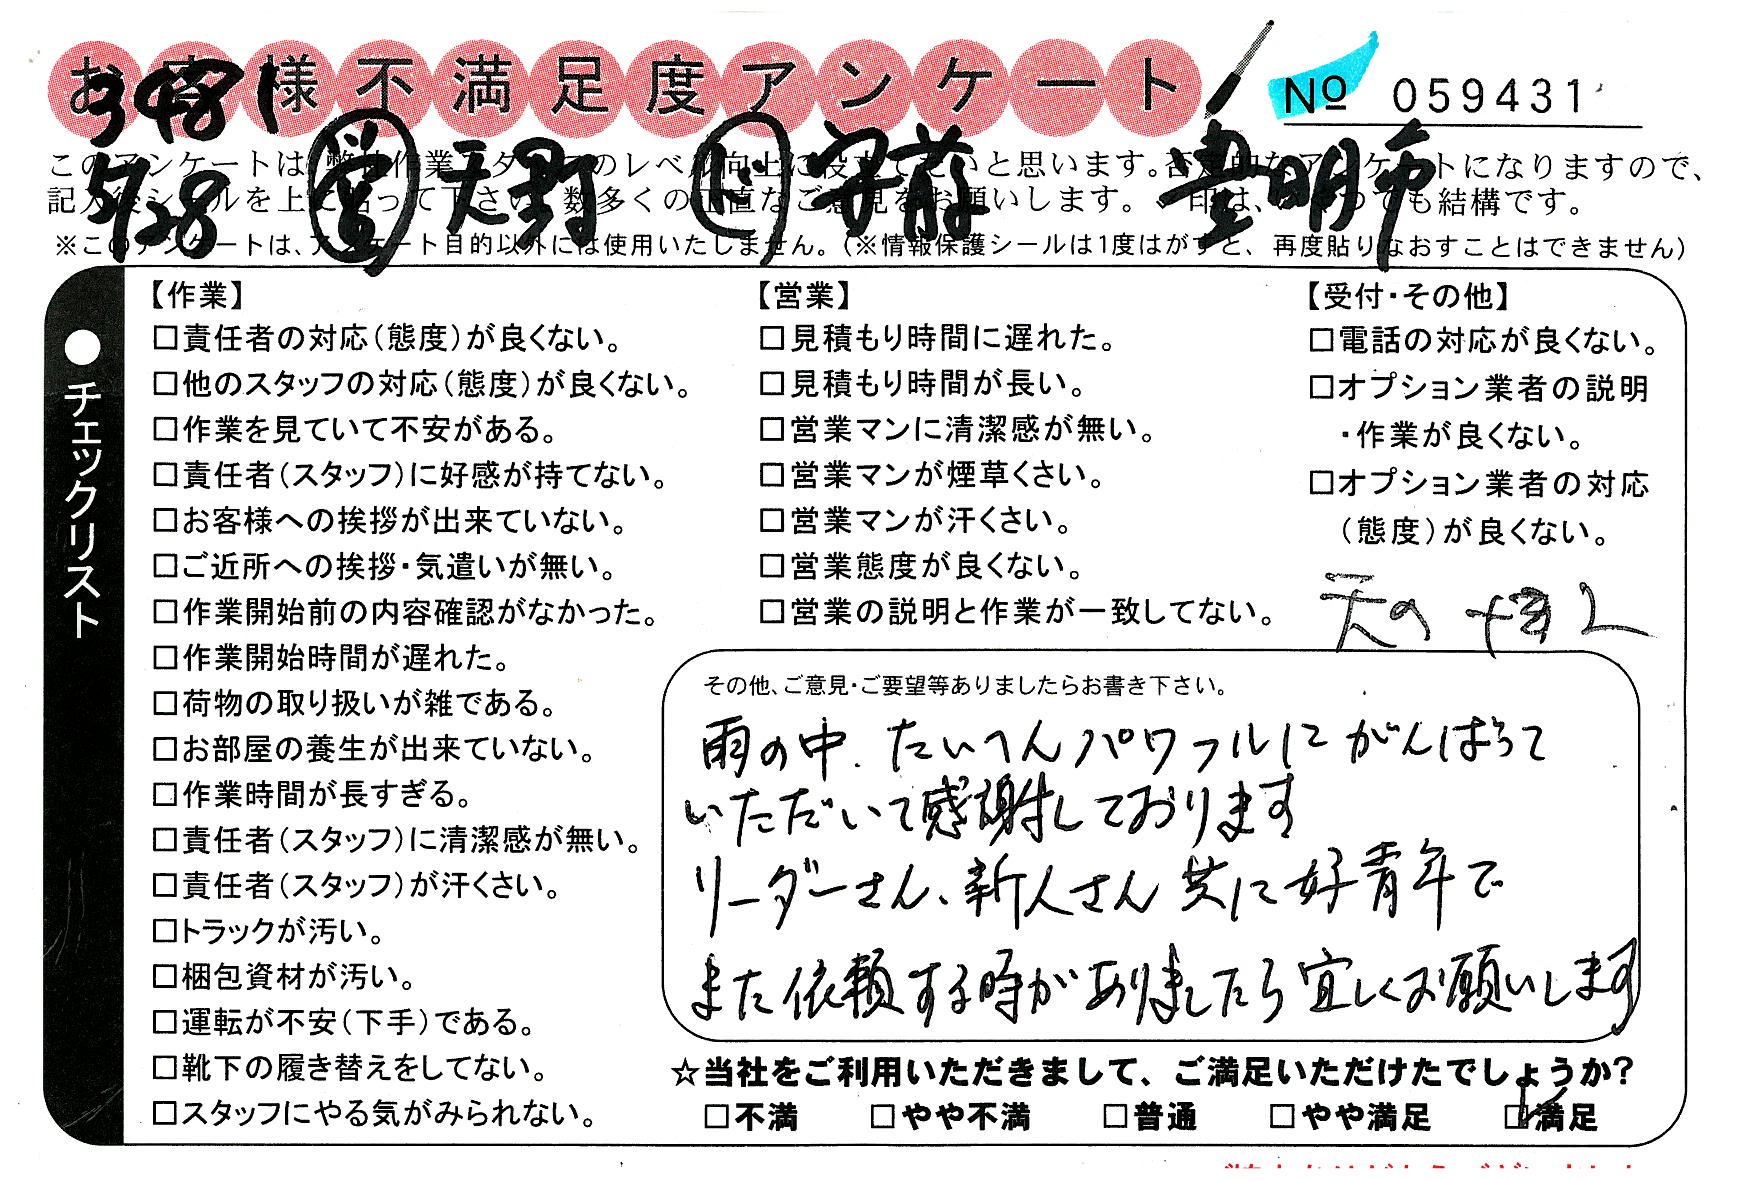 お客様不満足度アンケート
No 059431
3481
5/28 営 天野 リ 安藤 豊明市
このアンケートは弊社作業スタッフのレベル向上に役立てたいと思います。否定的なアンケートになりますので、
記入後シールを上に貼って下さい。数多くの正直なご意見をお願いします。✓印は、いくつでも結構です。
※このアンケートは、アンケート目的以外には使用いたしません。(※情報保護シールは1度はがすと、再度貼りなおすことはできません)
●チェックリスト
【作業】
□責任者の対応(態度)が良くない。
□他のスタッフの対応(態度)が良くない。
□作業を見ていて不安がある。
□責任者(スタッフ)に好感が持てない。
□お客様への挨拶が出来ていない。
□ご近所への挨拶・気遣いが無い。
□作業開始前の内容確認がなかった。
□作業開始時間が遅れた。
□荷物の取り扱いが雑である。
□お部屋の養生が出来ていない。
□作業時間が長すぎる。
□責任者(スタッフ)に清潔感が無い。
□責任者(スタッフ)が汗くさい。
□トラックが汚い。
□梱包資材が汚い。
□運転が不安(下手)である。
□靴下の履き替えをしてない。
□スタッフにやる気がみられない。
【営業】
□見積もり時間に遅れた。
□見積もり時間が長い。
□営業マンに清潔感が無い。
□営業マンが煙草くさい。
□営業マンが汗くさい。
□営業態度が良くない。
□営業の説明と作業が一致してない。
【受付・その他】
□電話の対応が良くない。
□オプション業者の説明
・作業が良くない。
□オプション業者の対応
(態度)が良くない。
その他、ご意見・ご要望等ありましたらお書き下さい。
雨の中、たいへんパワフルにがんばって
いただいて感謝しております
リーダーさん、新人さん共に好青年で
また依頼する時がありましたら宜しくお願いします
☆当社をご利用いただきまして、ご満足いただけたでしょうか?
□不満 □やや不満 □普通 □やや満足 ☑満足